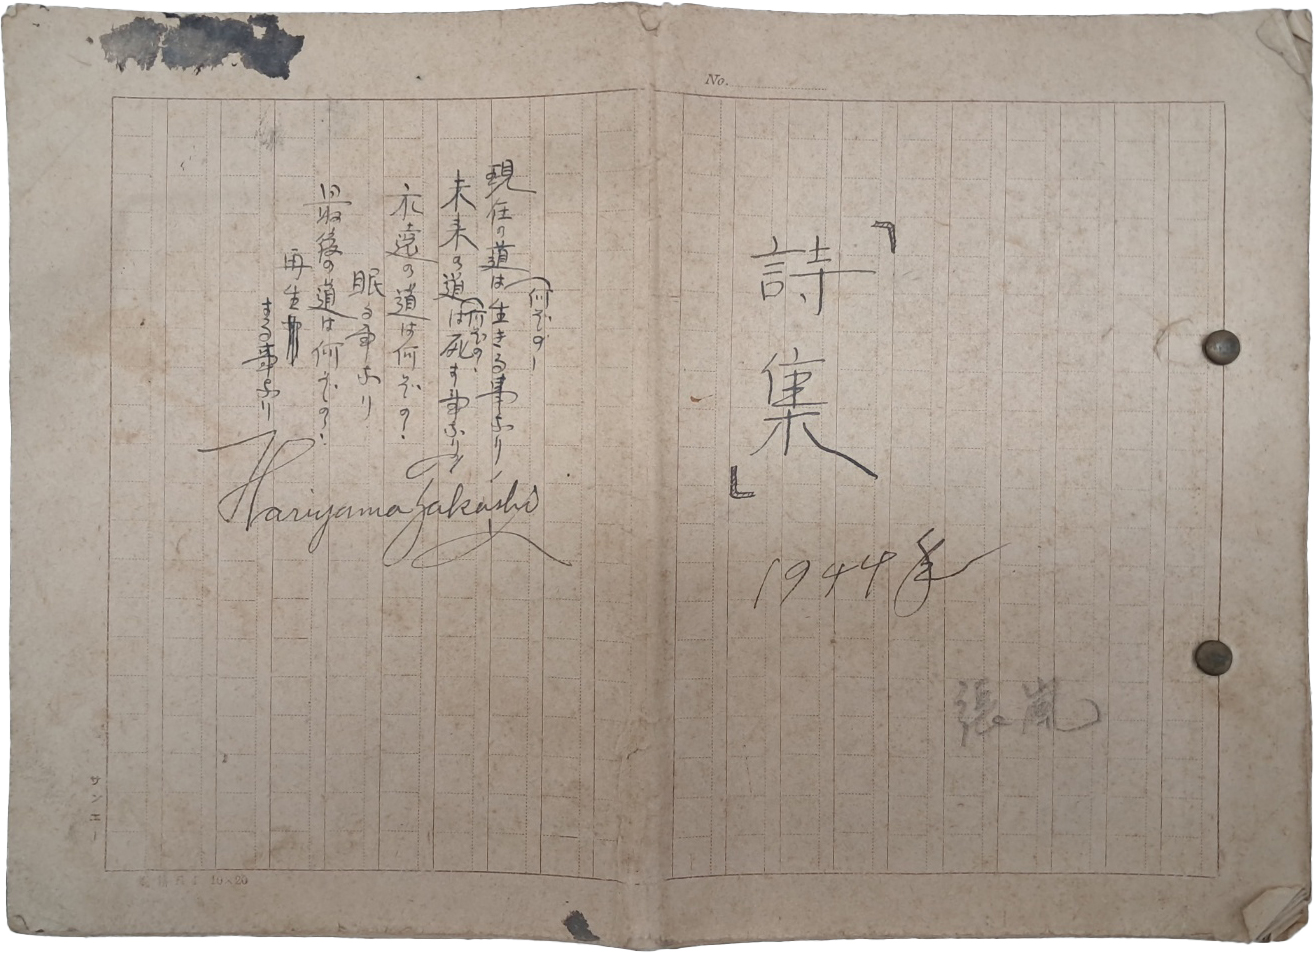 No.
「詩集」
1944年
張嵐
現在の道は(何ぞの)生きる事なり
未来の道は(何ぞの)死す事なり
永遠の道は何ぞの
眠る事なり
最後の道は何ぞの
再生
する事なり
Hariyama Takashi
サンエー
10×20